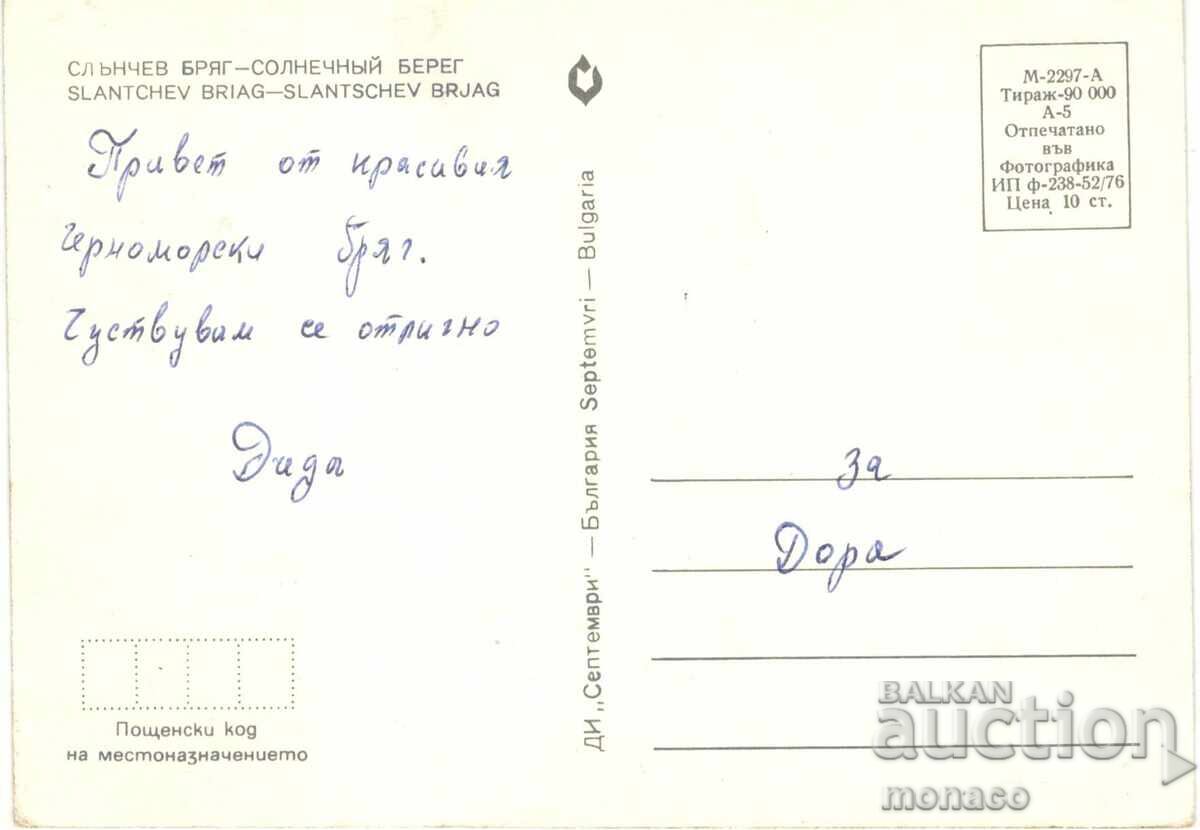 СЛЪНЧЕВ БРЯГ—СОЛНЕЧНЫЙ БЕРЕГ
SLANTCHEV BRIAG—SLANTSCHEV BRJAG
Привет от красивия
Черноморски бряг.
Чуствувам се отлично
Пощенски код
на местоназначението
ДИ „Септември" — България Septemvri — Bulgaria
М-2297-А
Тираж-90 000
А-5
Отпечатано
във
Фотографика
ИП ф-238-52/76
Цена 10 ст.
за
Дора
BALKAN
auction
monaco